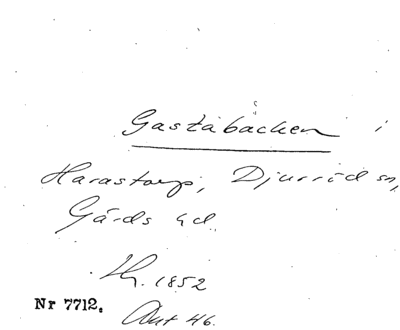 Gastabäcken i
Harastorp, Djurröd sn,
Gärds hd.
Th. 1852
Nr 7712.
Ant 46.